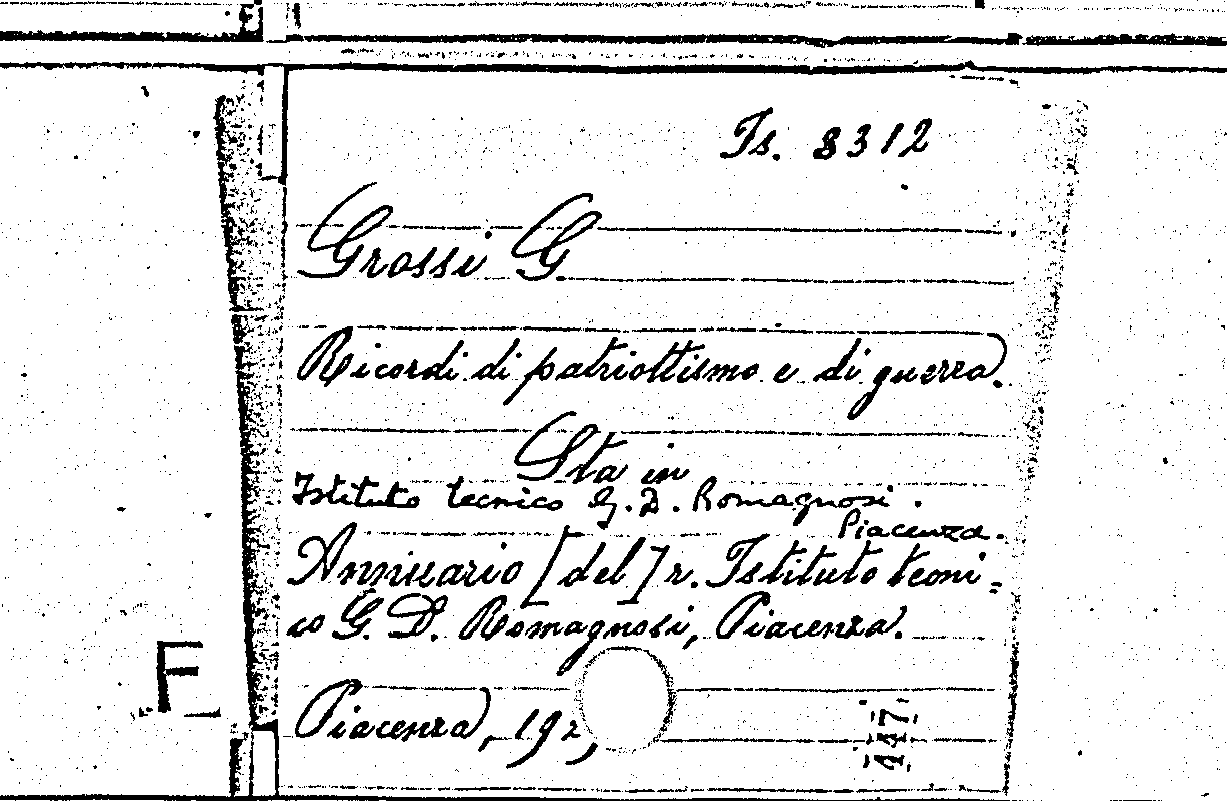 Is. 8312
Grossi G.
Ricordi di patriottismo e di guerra.
Sta in
Istituto tecnico G. D. Romagnosi.
Piacenza.
Annuario [del] r. Istituto tecni-
co G. D. Romagnosi, Piacenza.
F
Piacenza, 192